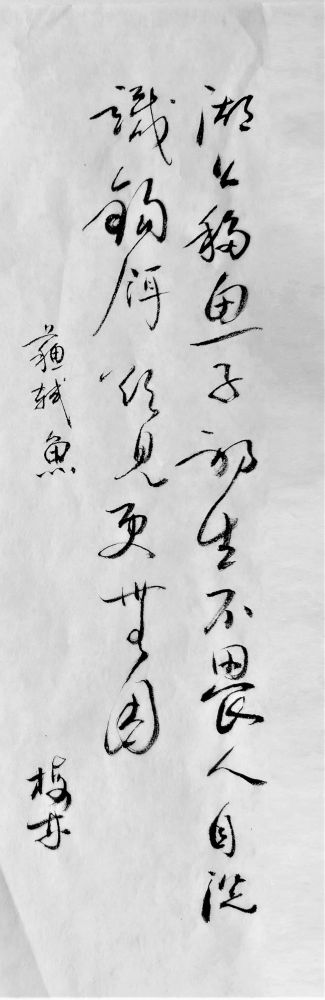 湖上移魚子初生不畏人自從
識鉤餌欲見更無因
蘇軾魚
梅林